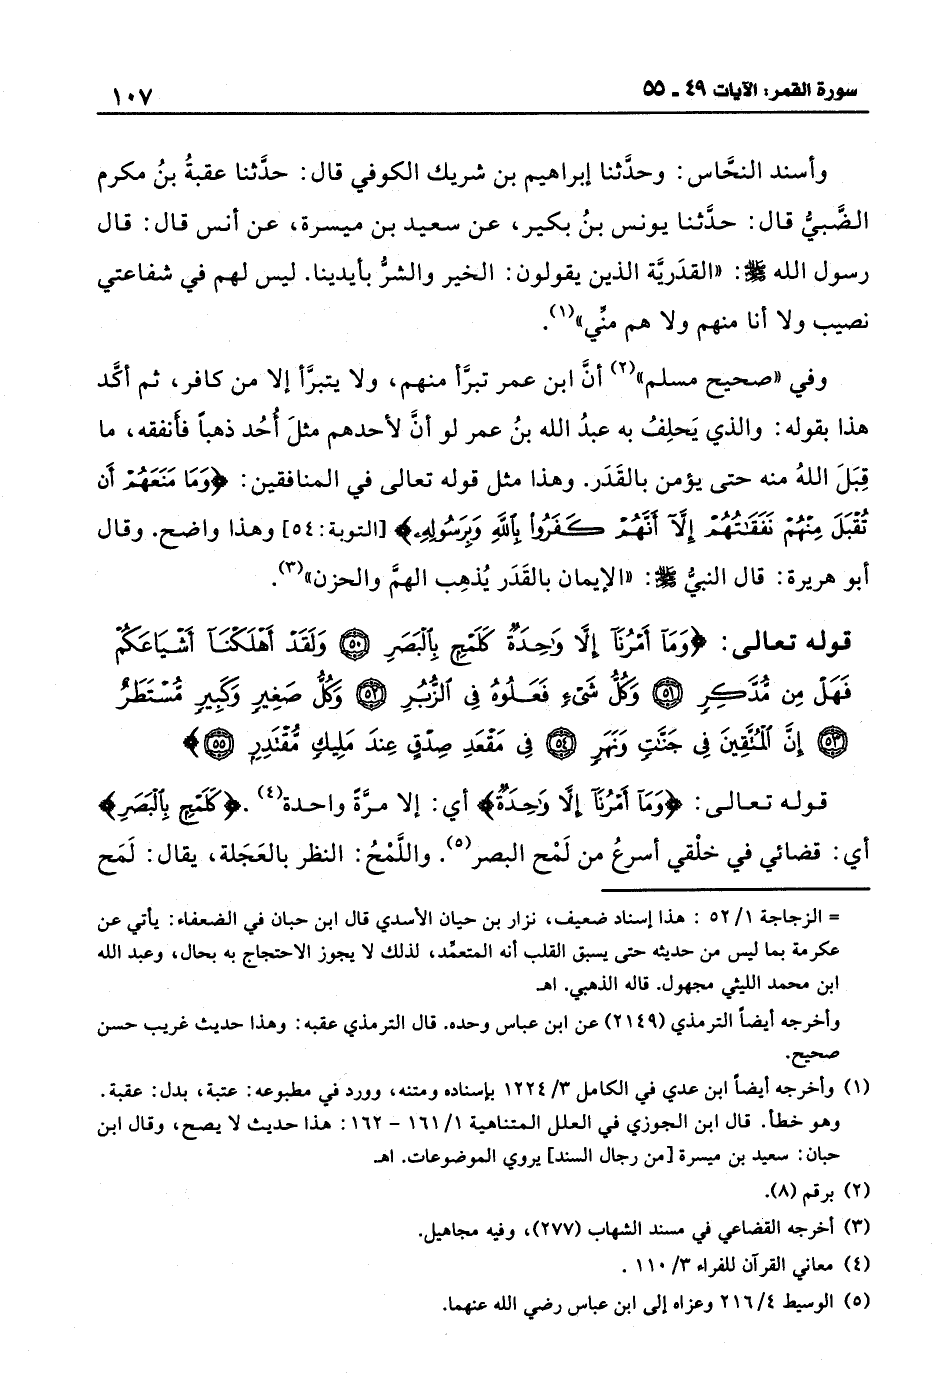 سورة القمر: الآيات ٤٩ ـ ٥٥
١٠٧
وأسند النحَّاس: وحدَّثنا إبراهيم بن شريك الكوفي قال: حدَّثنا عقبةُ بنُ مكرم
الضَّبيُّ قال: حدَّثنا يونس بنُ بكير، عن سعيد بن ميسرة، عن أنس قال: قال
رسول الله ﷺ: «القدَريَّة الذين يقولون: الخير والشرُّ بأيدينا. ليس لهم في شفاعتي
نصيب ولا أنا منهم ولا هم منِّي»(١).
وفي «صحيح مسلم»(٢) أنَّ ابن عمر تبرَّأ منهم، ولا يتبرَّأ إلا من كافر، ثم أكَّد
هذا بقوله: والذي يَحلِفُ به عبدُ الله بنُ عمر لو أنَّ لأحدهم مثلَ أُحُد ذهباً فأَنفقه، ما
قِبَلَ اللهُ منه حتى يؤمن بالقَدَر. وهذا مثل قوله تعالى في المنافقين: ﴿وَمَا مَنَعَهُمْ أَن
تُقْبَلَ مِنْهُمْ نَفَقَٰتُهُمْ إِلَّآ أَنَّهُمْ كَفَرُواْ بِٱللَّهِ وَبِرَسُولِهِۦ﴾ [التوبة: ٥٤] وهذا واضح. وقال
أبو هريرة: قال النبيُّ ﷺ: «الإيمان بالقَدَر يُذهِب الهمَّ والحزن»(٣).
قوله تعالى: ﴿وَمَآ أَمْرُنَآ إِلَّا وَٰحِدَةٌ كَلَمْحٍ بِٱلْبَصَرِ ۝٥٠ وَلَقَدْ أَهْلَكْنَآ أَشْيَاعَكُمْ
فَهَلْ مِن مُّدَّكِرٍ ۝٥١ وَكُلُّ شَىْءٍ فَعَلُوهُ فِى ٱلزُّبُرِ ۝٥٢ وَكُلُّ صَغِيرٍ وَكَبِيرٍ مُّسْتَطَرٌ
۝٥٣ إِنَّ ٱلْمُتَّقِينَ فِى جَنَّٰتٍ وَنَهَرٍ ۝٥٤ فِى مَقْعَدِ صِدْقٍ عِندَ مَلِيكٍ مُّقْتَدِرٍۭ ۝٥٥﴾
قوله تعالى: ﴿وَمَآ أَمْرُنَآ إِلَّا وَٰحِدَةٌ﴾ أي: إلا مرَّةً واحدة(٤). ﴿كَلَمْحٍ بِٱلْبَصَرِ﴾
أي: قضائي في خلْقي أسرعُ من لَمْح البصر(٥). واللَّمْحُ: النظر بالعَجَلة، يقال: لَمَح
= الزجاجة ١/ ٥٢ : هذا إسناد ضعيف، نزار بن حيان الأسدي قال ابن حبان في الضعفاء: يأتي عن
عكرمة بما ليس من حديثه حتى يسبق القلب أنه المتعمِّد، لذلك لا يجوز الاحتجاج به بحال، وعبد الله
ابن محمد الليثي مجهول. قاله الذهبي. اهـ
وأخرجه أيضاً الترمذي (٢١٤٩) عن ابن عباس وحده. قال الترمذي عقبه: وهذا حديث غريب حسن
صحيح.
(١) وأخرجه أيضاً ابن عدي في الكامل ٣/ ١٢٢٤ بإسناده ومتنه، وورد في مطبوعه: عتبة، بدل: عقبة.
وهو خطأ. قال ابن الجوزي في العلل المتناهية ١/ ١٦١ – ١٦٢ : هذا حديث لا يصح، وقال ابن
حبان: سعيد بن ميسرة [من رجال السند] يروي الموضوعات. اهـ
(٢) برقم (٨).
(٣) أخرجه القضاعي في مسند الشهاب (٢٧٧)، وفيه مجاهيل.
(٤) معاني القرآن للفراء ٣/ ١١٠ .
(٥) الوسيط ٤/ ٢١٦ وعزاه إلى ابن عباس رضي الله عنهما.